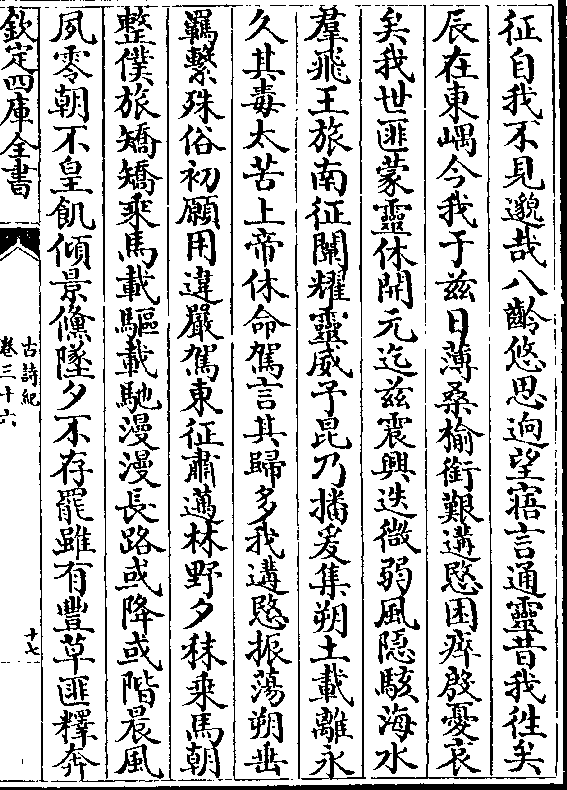 征自我不見邈哉八齡悠思逈望寤言通靈昔我徃矣
辰在東嵎今我于兹日薄桑榆銜艱遘愍困瘁殷憂哀
矣我世匪蒙靈休開元迄兹震興迭微弱風隱駭海水
羣飛王旅南征闡耀靈威予昆乃播爰集朔土載離永
久其毒太苦上帝休命駕言其歸多我遘愍振蕩朔垂
羈繫殊俗初願用違嚴駕東征肅邁林野夕秣乗馬朝
整僕旅矯矯乗馬載驅載馳漫漫長路或降或階晨風
夙零朝不皇飢傾景儵墜夕不存罷雖有豐草匪釋奔
欽定四庫全書
古詩紀
卷三十六
十七